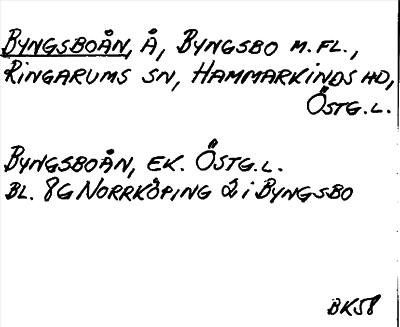 BYNGSBOÅN, Å, BYNGSBO M.FL.,
RINGARUMS SN, HAMMARKINDS HD,
ÖSTG.L.
BYNGSBOÅN, EK. ÖSTG.L.
BL. 8G NORRKÖPING Å i BYNGSBO
BK58